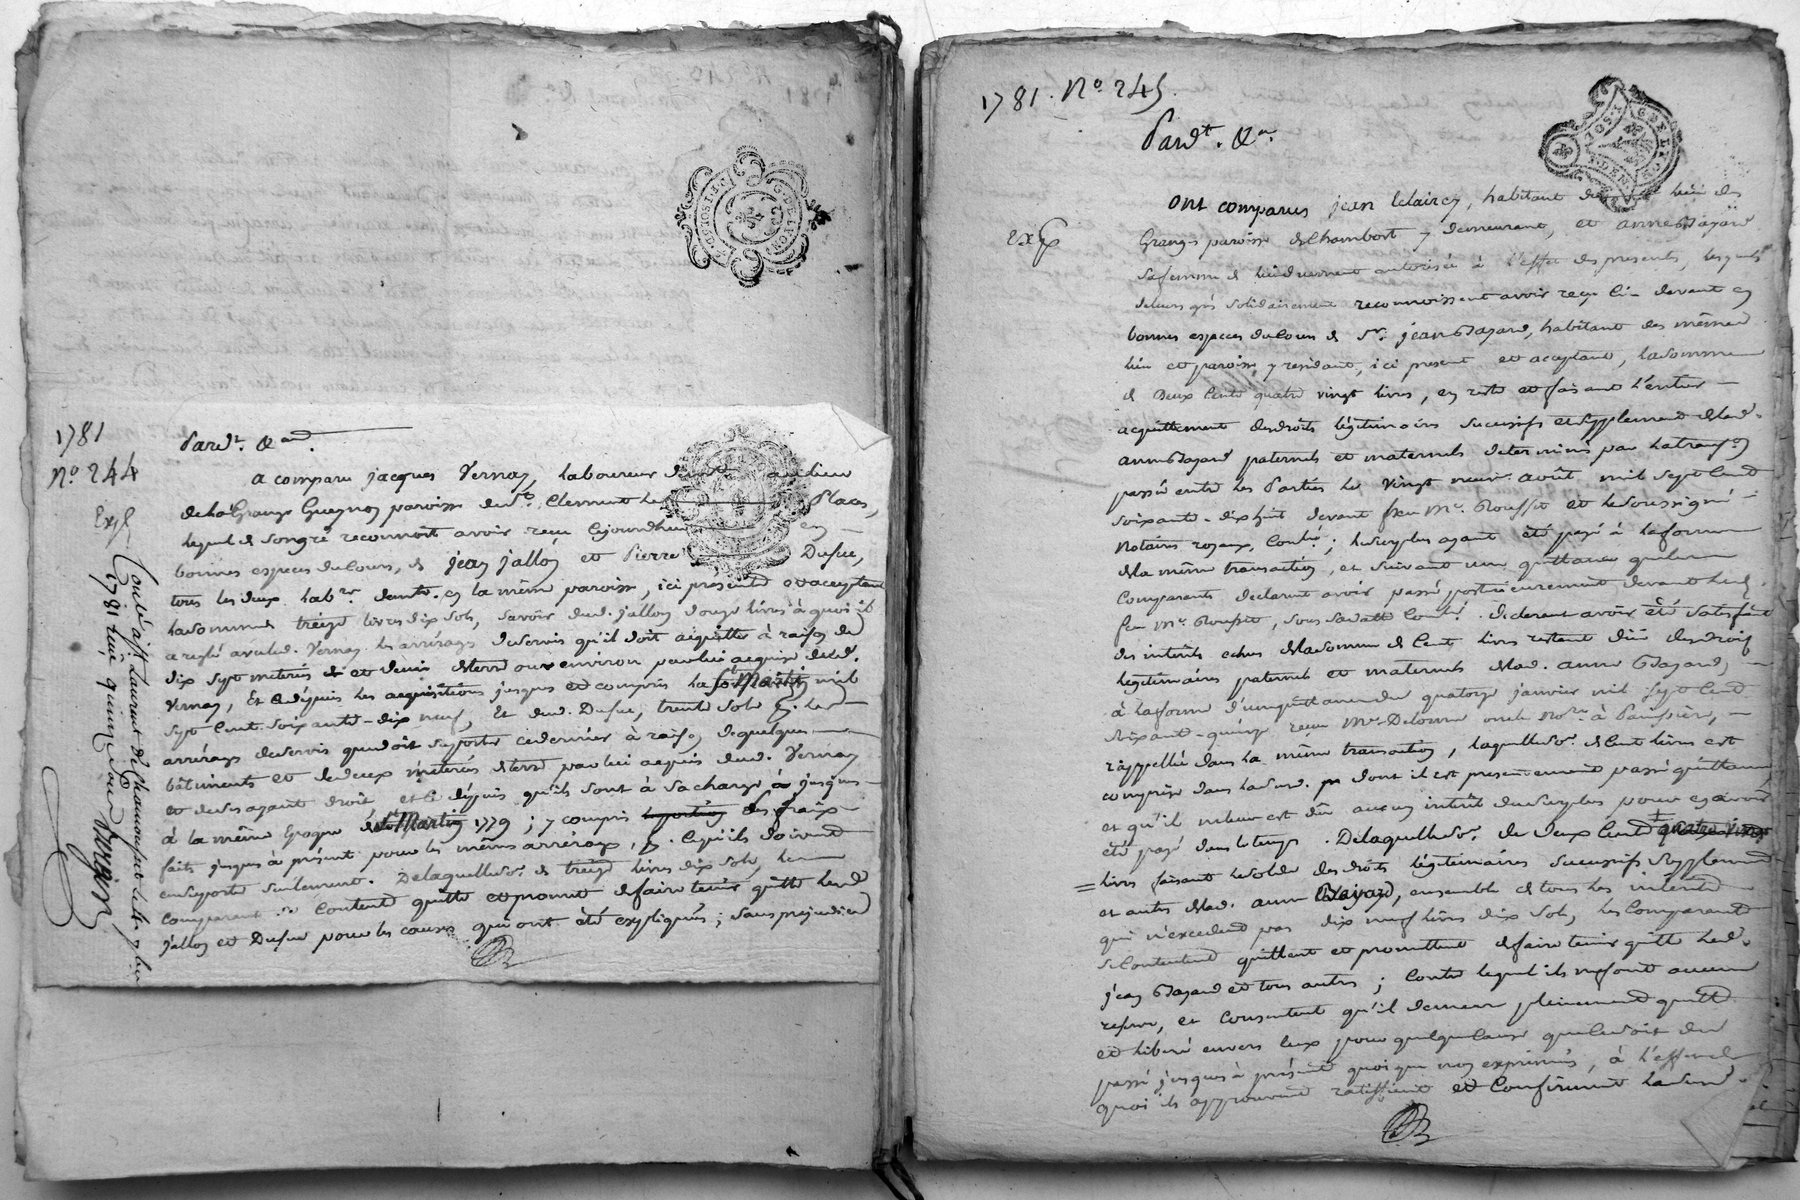 1781
Nº 244
Pardt. &a
Exp
A comparu jacques Vernay, laboureur demt. au lieu
de la Grange Guegnon paroisse de St. Clement les Places,
lequel de son gré reconnoit avoir reçu cejourdhui en
bonnes especes du cours, de jean jallon et Pierre Dufue,
tous les deux labrs. demts. en la même paroisse, ici présents et acceptant
la somme treize livres dix sols, savoir dud. jallon douze livres à quoi il
a reglé avec led. Vernay les arrérages de servis qu'il doit aquitter à raison de
dix sept meterés et demie de terre ou environ par lui acquise dud.
Vernay, Et depuis les acquisitions jusques et compris la St Martin mil
sept cent soixante-dix neuf, Et dud. Dufue, trente sols p. les
arrérages de servis que doit suporter ce dernier à raison de quelques
bâtiments et de deux meterés de terre par lui acquis dud. Vernay
et de ses ayant droit, et depuis qu'ils sont à sa charge jusques
à la même Epoque de St Martin 1779; y compris les fraix
faits jusques à présent pour les mêmes arréraux, p. ce qu'ils doivent
en suporter seulement. De laquelle so. de treize livres dix sols, le
comparant content quitte et promet de faire tenir quitte lesd.
jallon et Dufue pour les causes qui ont été expliquées; sans préjudice
Conlé à St Laurent de Chamousset le
1781 reçu quinze sous
G. DE LYON
1781. Nº 245.
Pardt. &a.
Exp
Ont comparus jean leclaircy, habitant du lieu des
Granges paroisse de Chambost y demeurant, et anne Bayard
sa femme de lui duement autorisée à l'effet des presentes, lesquels
de leurs grés solidairement reconnoissent avoir reçu ci-devant en
bonnes especes du cours de Sr. jean Bayard, habitant des mêmes
lieu et paroisse y residant, ici present et acceptant, la somme
de Deux Cents quatre vingt livres, en reste et faisant l'entier
acquittement des droits légitimaires successifs et supplement de lad.
anne Bayard paternels et maternels determinés par la transaction
passée entre les Parties le vingt neuf août mil sept cent
soixante-dix huit devant feu Me. Rousset et le soussigné
Notaires royaux, Contlé; le surplus ayant été payé à la forme
de la même transaction, et suivant une quittance que les
Comparants declarent avoir passé posterieurement devant led.
feu Me. Rousset, sous sa datte Contlé. Declarent avoir été satisfait
des intérêts echus de la somme de Cent livres restant düe des droits
légitimaires paternels et maternels de lad. anne Bayard,
à la forme d'une quittance du quatorze janvier mil sept cent
soixante-quinze reçue Me. Delorme notre. à Panissière,
rappellée dans la même transaction, laquelle so. de Cent livres est
comprise dans la susd. dont il est presentement passé quittance,
et qu'il ne leur est dû aucun intérêt du surplus pour en avoir
été payé dans le temps. De laquelle so. de deux Cent quatre vingt
livres faisant le solde des droits légitimaires successifs supplement
et autres de lad. anne Bayard, ensemble de tous les intérêts
qui n'excedent pas dix neuf livres dix sols, les Comparants
se contentent quittent et promettent de faire tenir quitte led.
jean Bayard et tous autres; Contre lequel ils ne font aucune
reserve, et consentent qu'il demeure pleinement quitte
et liberé envers eux pour quelque cause que ce soit du
passé jusques à présent quoique non exprimée, à l'effet de
quoi ils approuvent ratiffient et Confirment la susd.